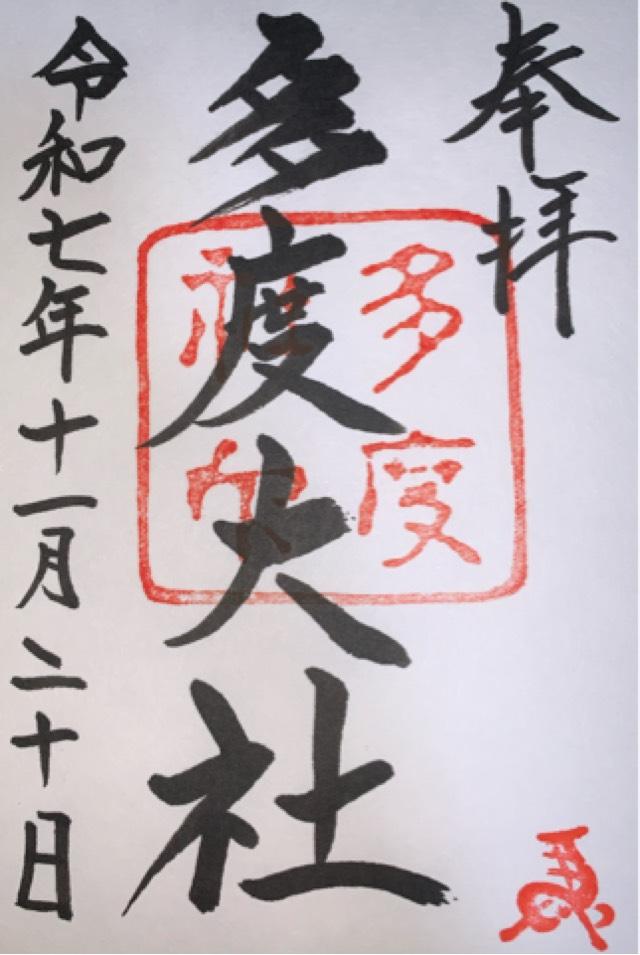 奉拝
多度大社
多度
令和七年十一月二十日